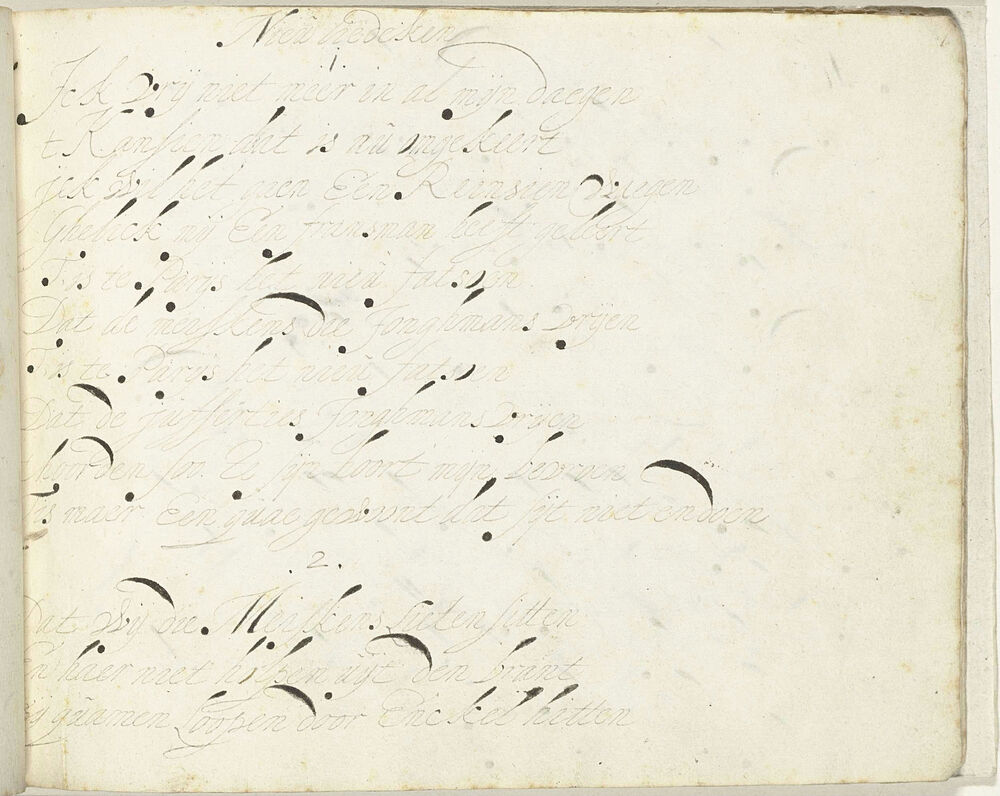 Nieu liedeken
1
Jck vrij niet meer in al mijn daegen
t Kansien dat is nu omgekeert
jck wil het gaen Een Rein vraegen
Ghelick mij Een fransman heeft geleert
Tis te Parijs het nieu fatsoen
Dat de meiskens die Jonghmans vrijen
Tis te Parijs het nieu fatsoen
Dat de jufferties Jonghmans vrijen
worden soo Ze sijn hoort mijn bevroen
Tis maer Een quae gewoont dat sijt niet en doen
.2.
Dat wij die Meiskens Lieten sitten
En haer niet hilpen uijt den brant
sij quamen Loopen door Enckel hitten